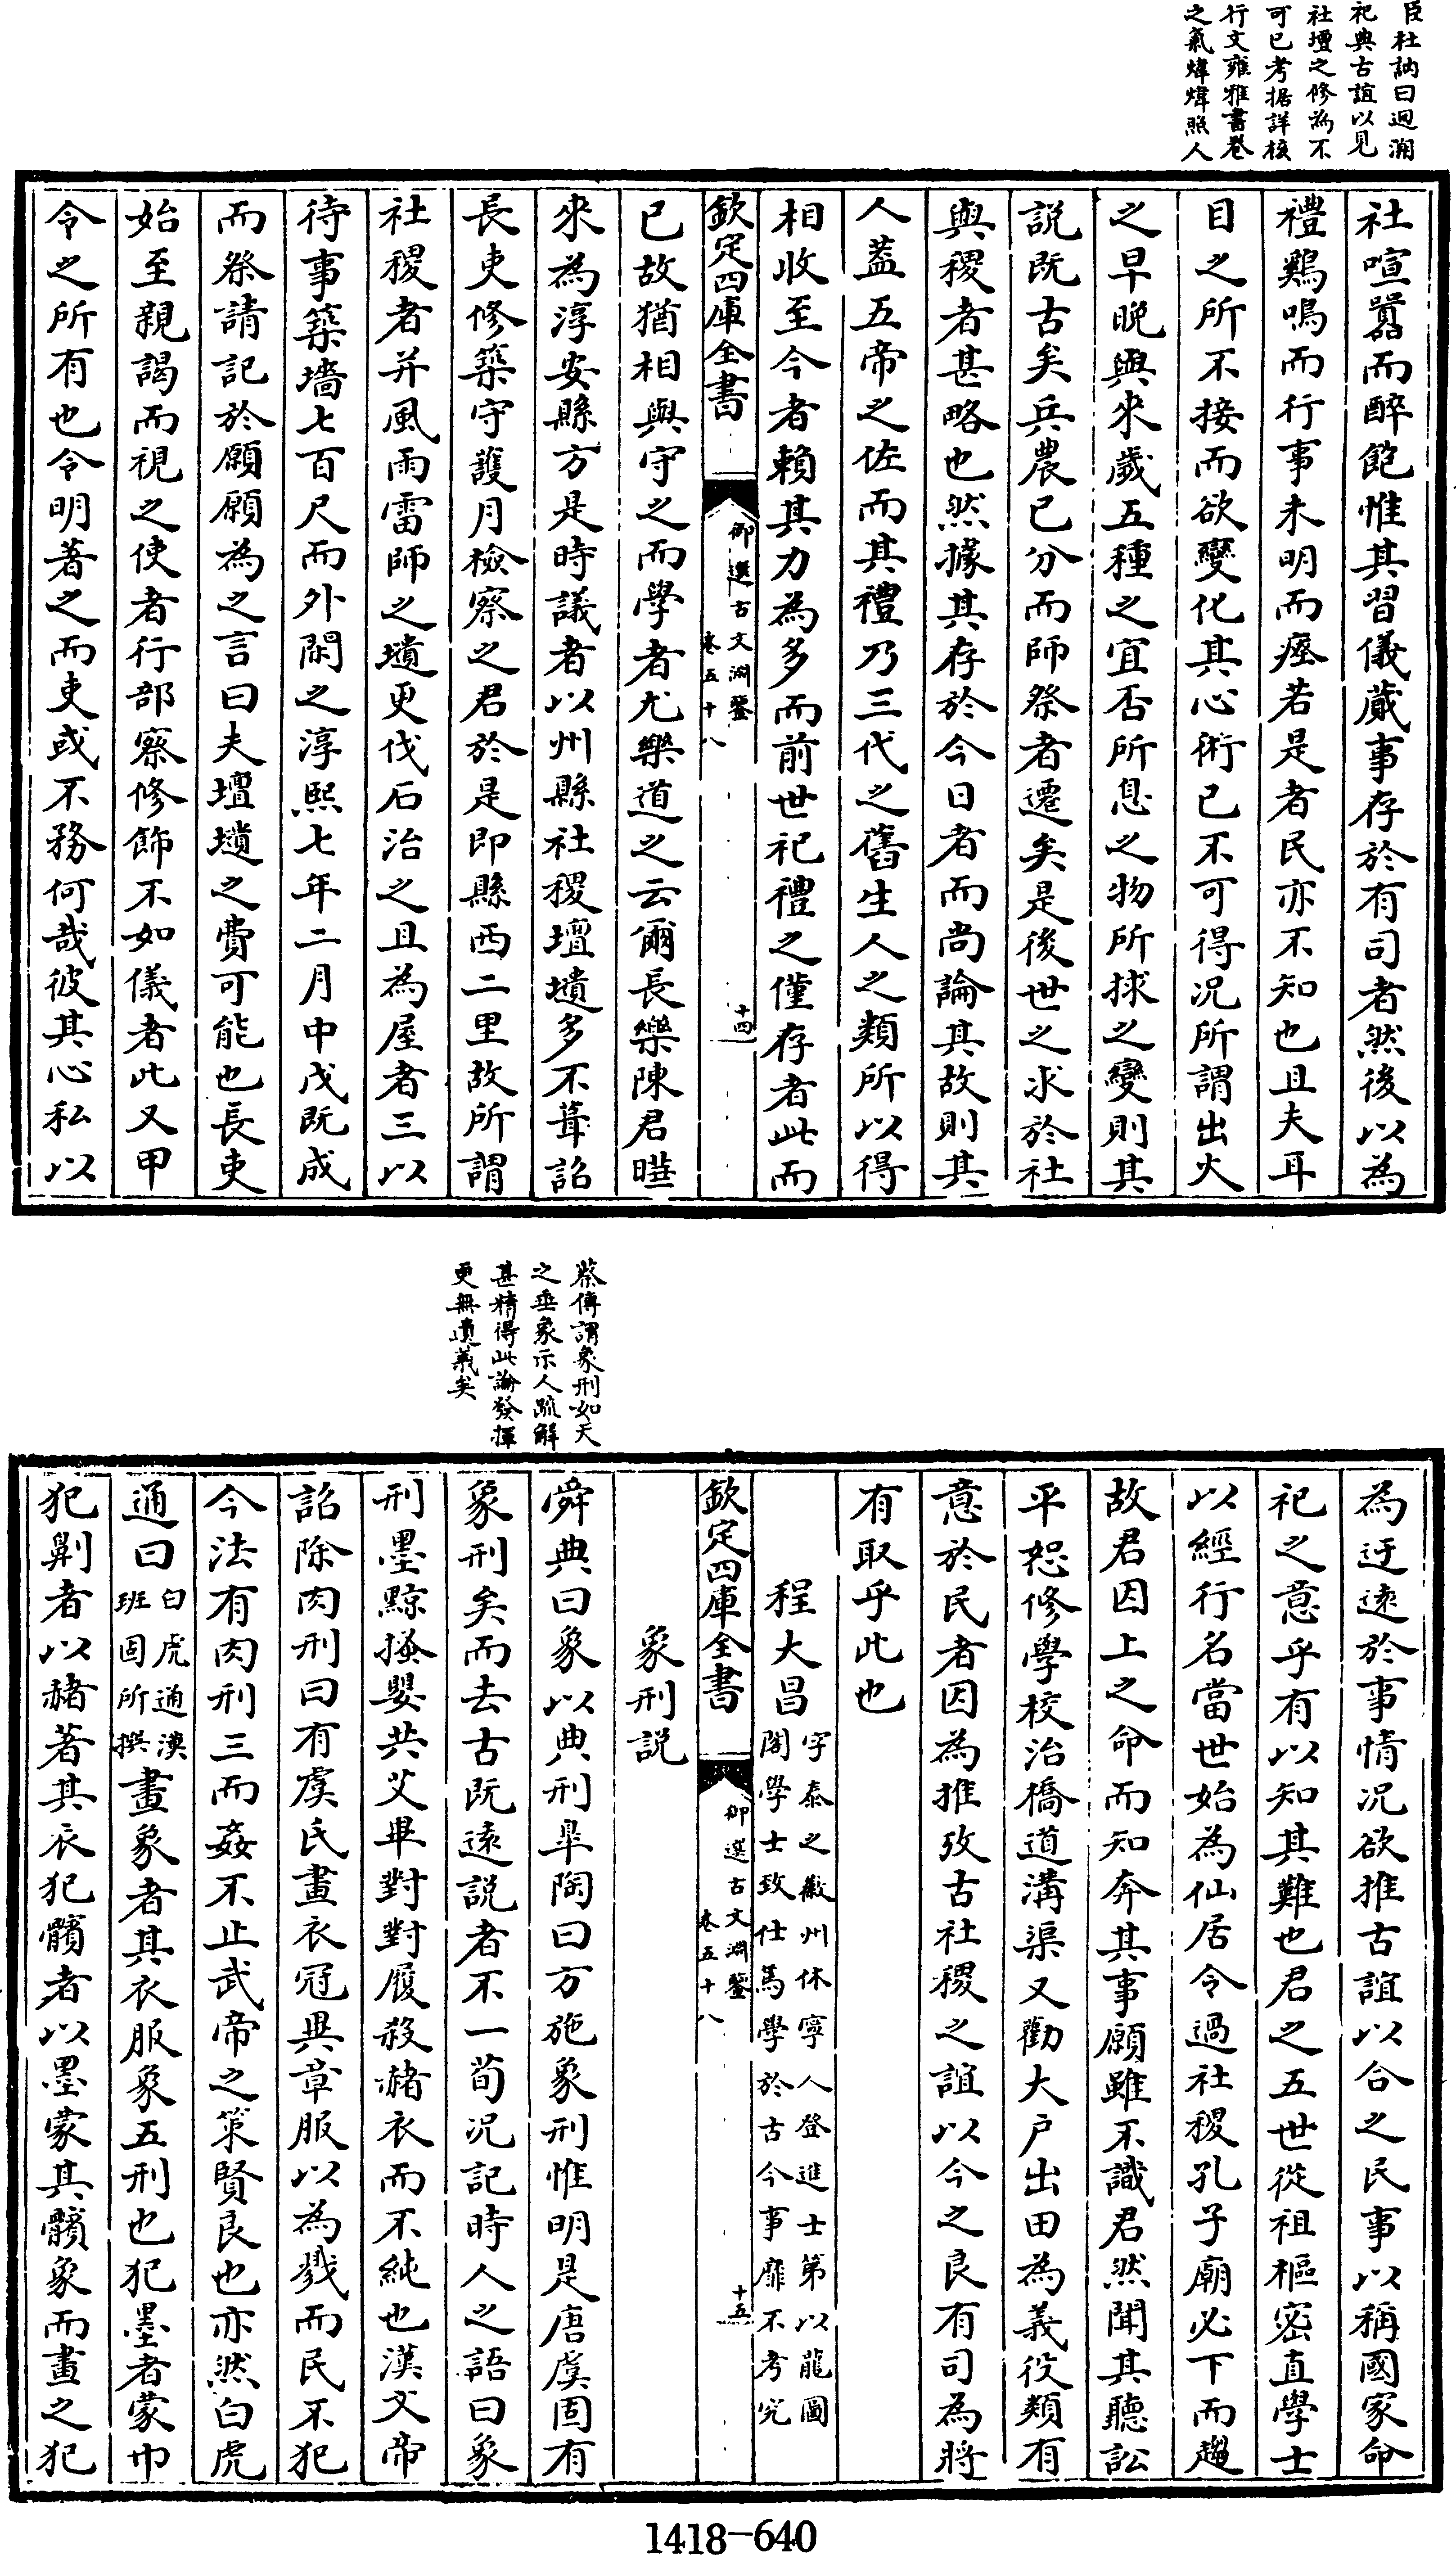 臣杜訥曰迴溯
祀典古誼以見
社壇之修為不
可已考据詳核
行文雍雅書卷
之氣煒煒照人
社喧嚣而醉飽惟其習儀蕆事存於有司者然後以為
禮鷄鳴而行事未明而瘞若是者民亦不知也且夫耳
目之所不接而欲變化其心術已不可得况所謂出火
之早晚與來歲五種之宜否所息之物所捄之變則其
説既古矣兵農已分而師祭者遷矣是後世之求於社
與稷者甚略也然據其存於今日者而尚論其故則其
人葢五帝之佐而其禮乃三代之舊生人之類所以得
相收至今者賴其力為多而前世祀禮之僅存者此而
欽定四庫全書
御選古文淵鑒
卷五十八
十四
已故猶相與守之而學者尤樂道之云爾長樂陳君曄
來為淳安縣方是時議者以州縣社稷壇壝多不葺詔
長吏修築守護月檢察之君於是即縣西二里故所謂
社稷者并風雨雷師之壝更伐石治之且為屋者三以
待事築墻七百尺而外閑之淳熙七年二月中戊既成
而祭請記於願願為之言曰夫壇壝之費可能也長吏
始至親謁而視之使者行部察修飾不如儀者此又甲
令之所有也令明著之而吏或不務何哉彼其心私以
蔡傳謂象刑如天
之垂象示人疏解
甚精得此論發揮
更無遺義矣
為迂逺於事情况欲推古誼以合之民事以稱國家命
祀之意乎有以知其難也君之五世從祖樞密直學士
以經行名當世始為仙居令過社稷孔子廟必下而趨
故君因上之命而知奔其事願雖不識君然聞其聽訟
平恕修學校治橋道溝渠又勸大户出田為義役類有
意於民者因為推攷古社稷之誼以今之良有司為將
有取乎此也
程大昌字泰之徽州休寧人登進士第以龍圖
閣學士致仕篤學於古今事靡不考究
欽定四庫全書
御選古文淵鑒
卷五十八
十五
象刑説
舜典曰象以典刑臯陶曰方施象刑惟明是唐虞固有
象刑矣而去古既逺説者不一荀况記時人之語曰象
刑墨黥慅嬰共艾畢對對屨殺赭衣而不純也漢文帝
詔除肉刑曰有虞氏畫衣冠異章服以為戮而民不犯
今法有肉刑三而姦不止武帝之策賢良也亦然白虎
通曰白虎通漢
班固所撰畫象者其衣服象五刑也犯墨者蒙巾
犯劓者以赭著其衣犯髕者以墨蒙其髕象而畫之犯
1418-640